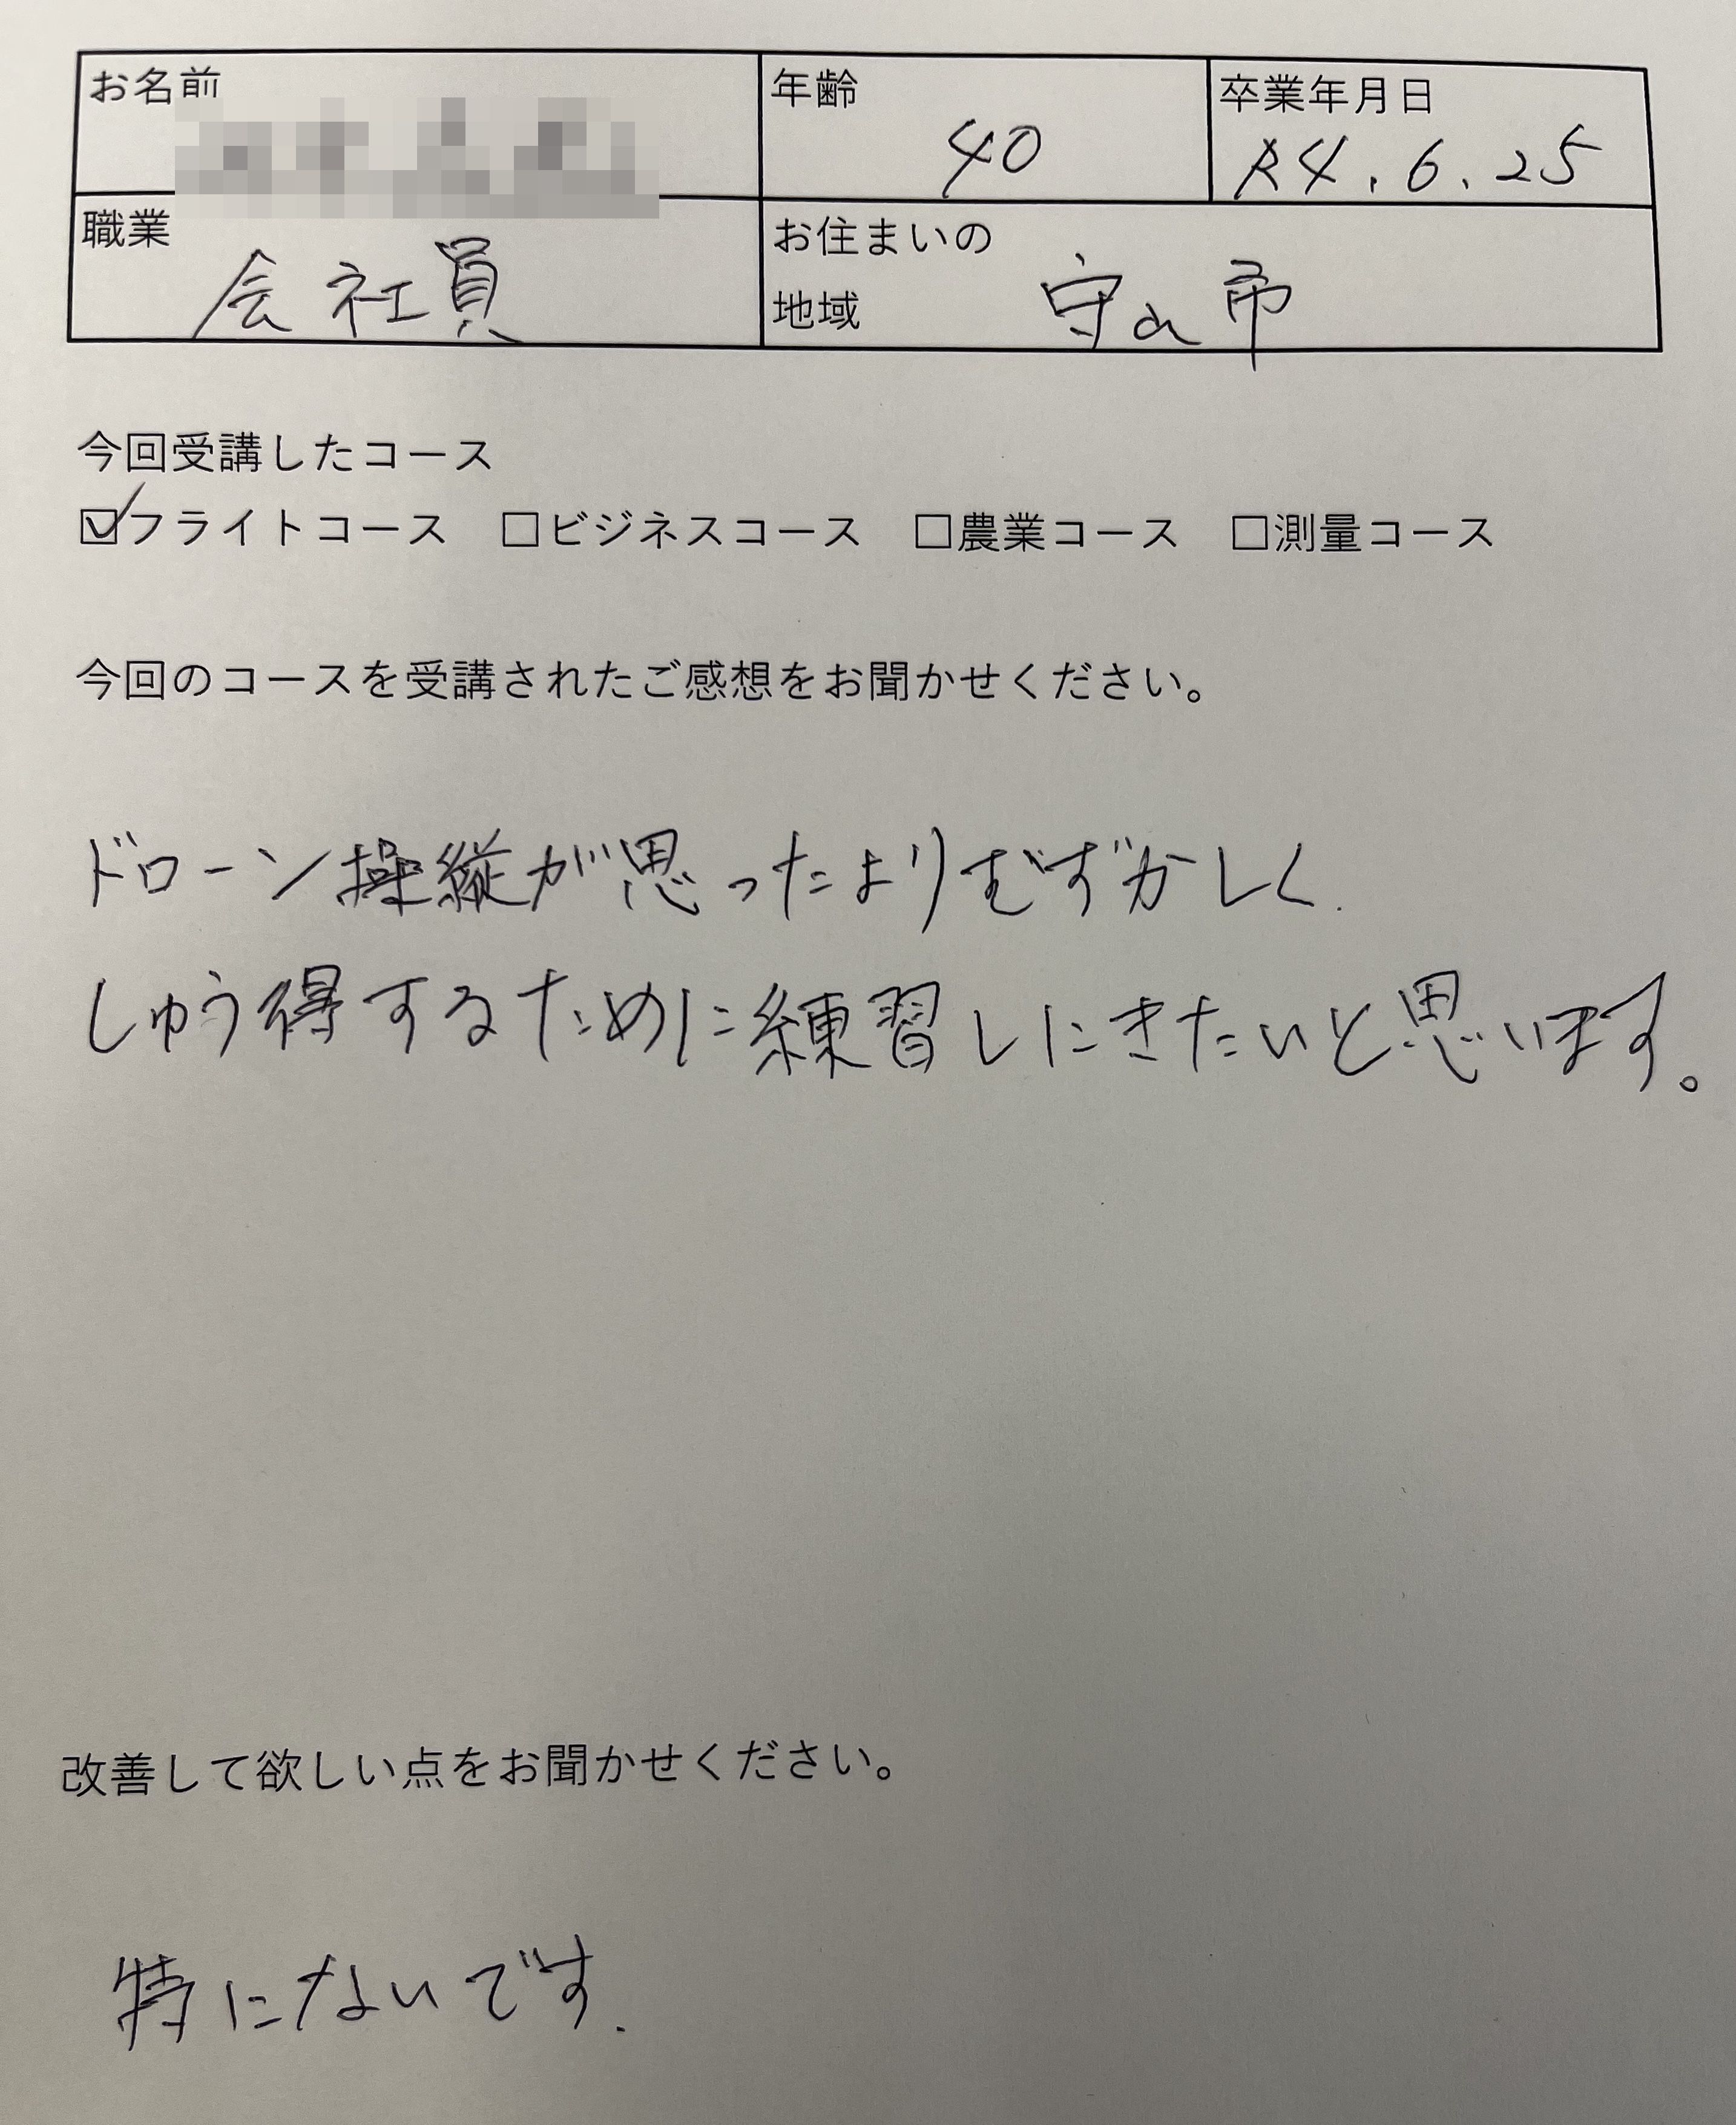 お名前 年齢 卒業年月日
40 R4.6.25
職業 お住まいの
会社員 地域 守山市
今回受講したコース
☑フライトコース □ビジネスコース □農業コース □測量コース
今回のコースを受講されたご感想をお聞かせください。
ドローン操縦が思ったよりむずかしく.
しゅう得するために練習しにきたいと思います。
改善して欲しい点をお聞かせください。
特にないです.